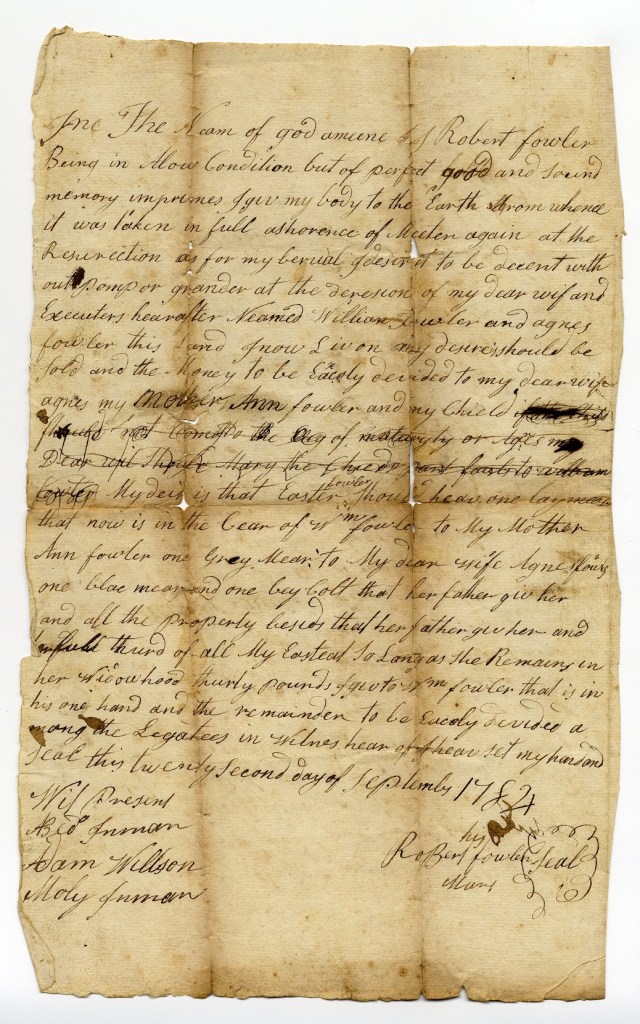 Ine The Neam of god ameene I Robert fowler
Being in Alow Condition but of perfect good and sound
memory imprimes I giv my body to the Earth from whence
it was taken in full ashorence of Meeten again at the
Resurection as for my berual I desir it to be decent with
out pomp or grander at the deresion of my dear wif and
Executers hearafter Neamed William fowler and agnes
fowler this Land I now Liv on my desire should be
sold and the Money to be Eacoly devided to my dear wife
agnes my Mother Ann fowler and my Chield
should not Com to the Aeg of maturyty or Agnes my
Dear wif Should Mary the Chield
fowler My deir is that Easter fowler should heav one lay mear
that now is in the Cear of Wm fowler to My Mother
Ann fowler one Grey Mear to My dear Wife Agnes fowler
one blac mear and one bey Colt that her father giv her
and all the Property besids that her father giv her and
full thurd of all My Easteat So Long as She Remains in
her Widowhood thurty pounds I giv to Wm fowler that is in
his one hand and the remainder to be Eacoly devided a
mong the Legatees in Witnes hear of I hear set my hand and
Seal this twenty Second day of September 1784
Wit Present
Abed Inman
Adam Willson
Moly Inman
his
Robert fowler Seal
Mark